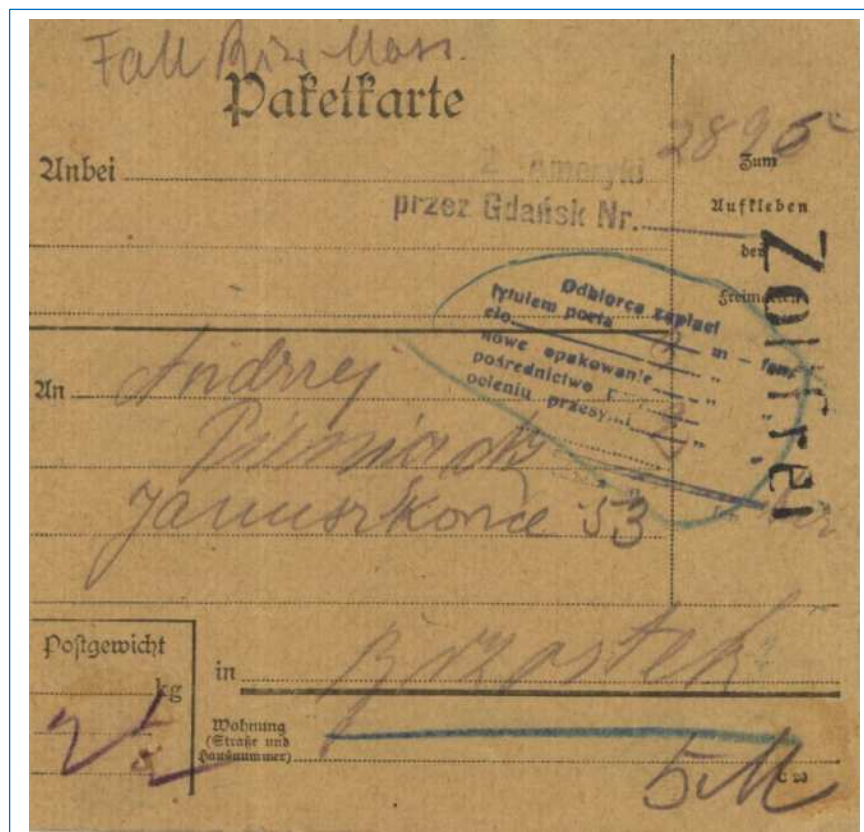 Fall River Mass.
Paketkarte
2895
Anbei
Z Ameryki
przez Gdańsk Nr.
Zum
Aufkleben
der
Freimarken
Zollfrei
Odbiorca zapłaci
tytułem porta m – fen.
cło "
nowe opakowanie "
pośrednictwo "
ocleniu przesyłki "
An Andrzej
Januszkowice 53
Postgewicht
kg
in Brzostek
Wohnung
(Straße und
Hausnummer)
5 M